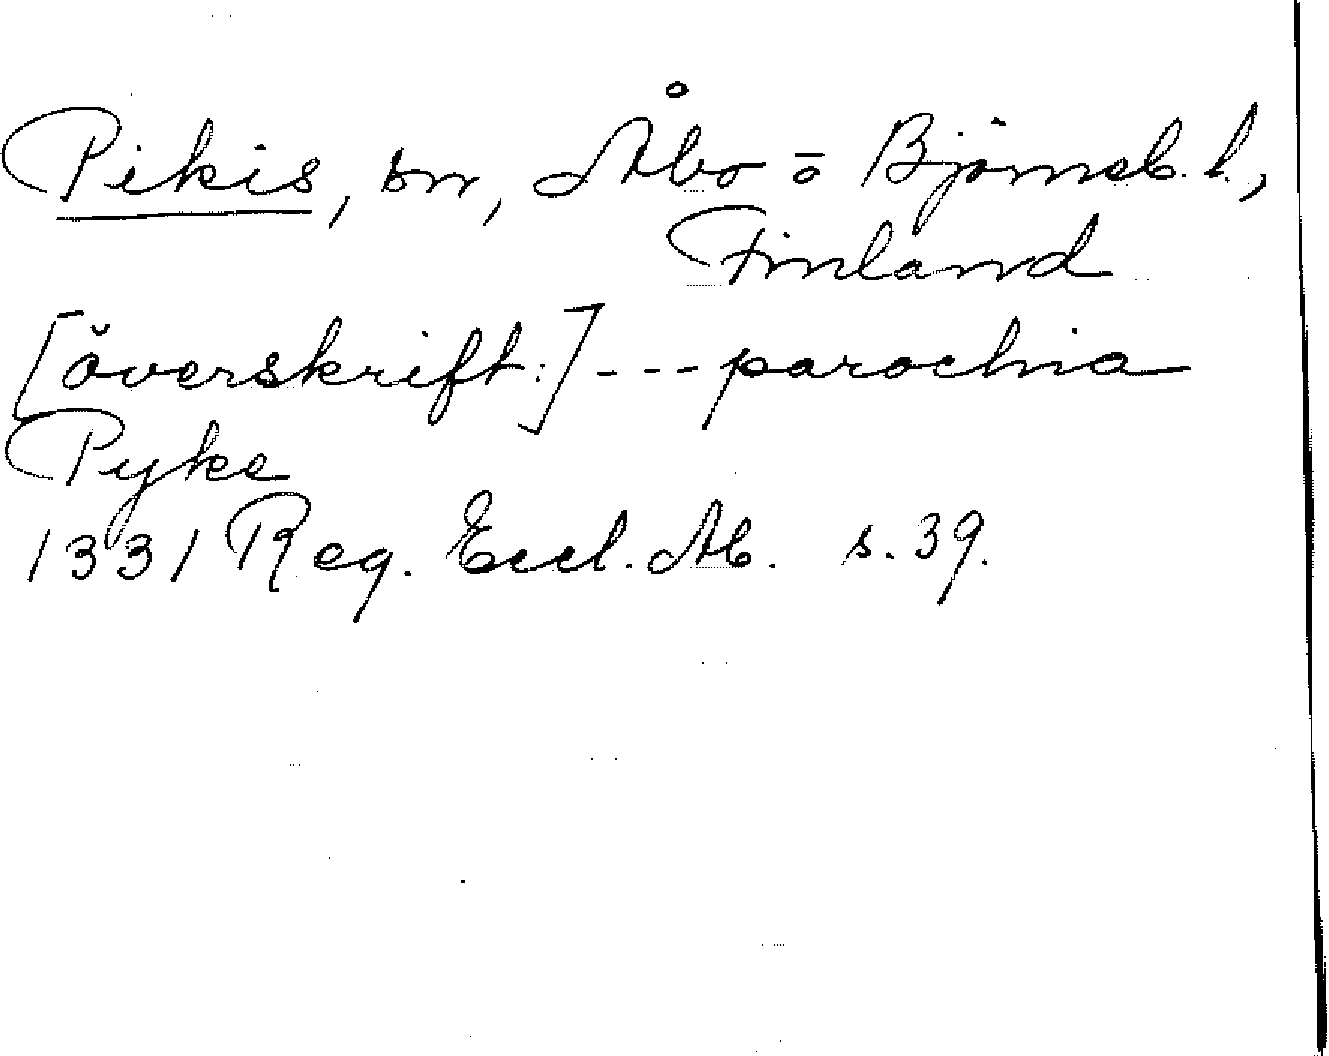 Pikis, sn, Åbo o Björneb. l.,
Finland
[överskrift:] --- parochia
Pyke
1331 Reg. Eccl. Ab. s. 39.